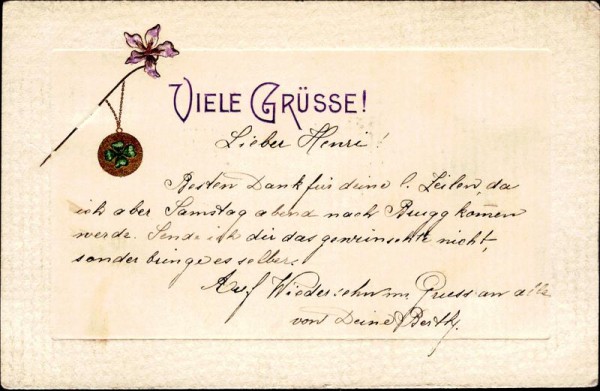 VIELE GRÜSSE!
Lieber Henri!
Besten Dank für deine l. Zeilen, da
ich aber Samstag abend nach Brugg kom̄en
werde. Sende ich dir das gewünschte nicht,
sonder bringe es selber.
Auf Wiedersehn Gruess an alle
von Deine Berth.